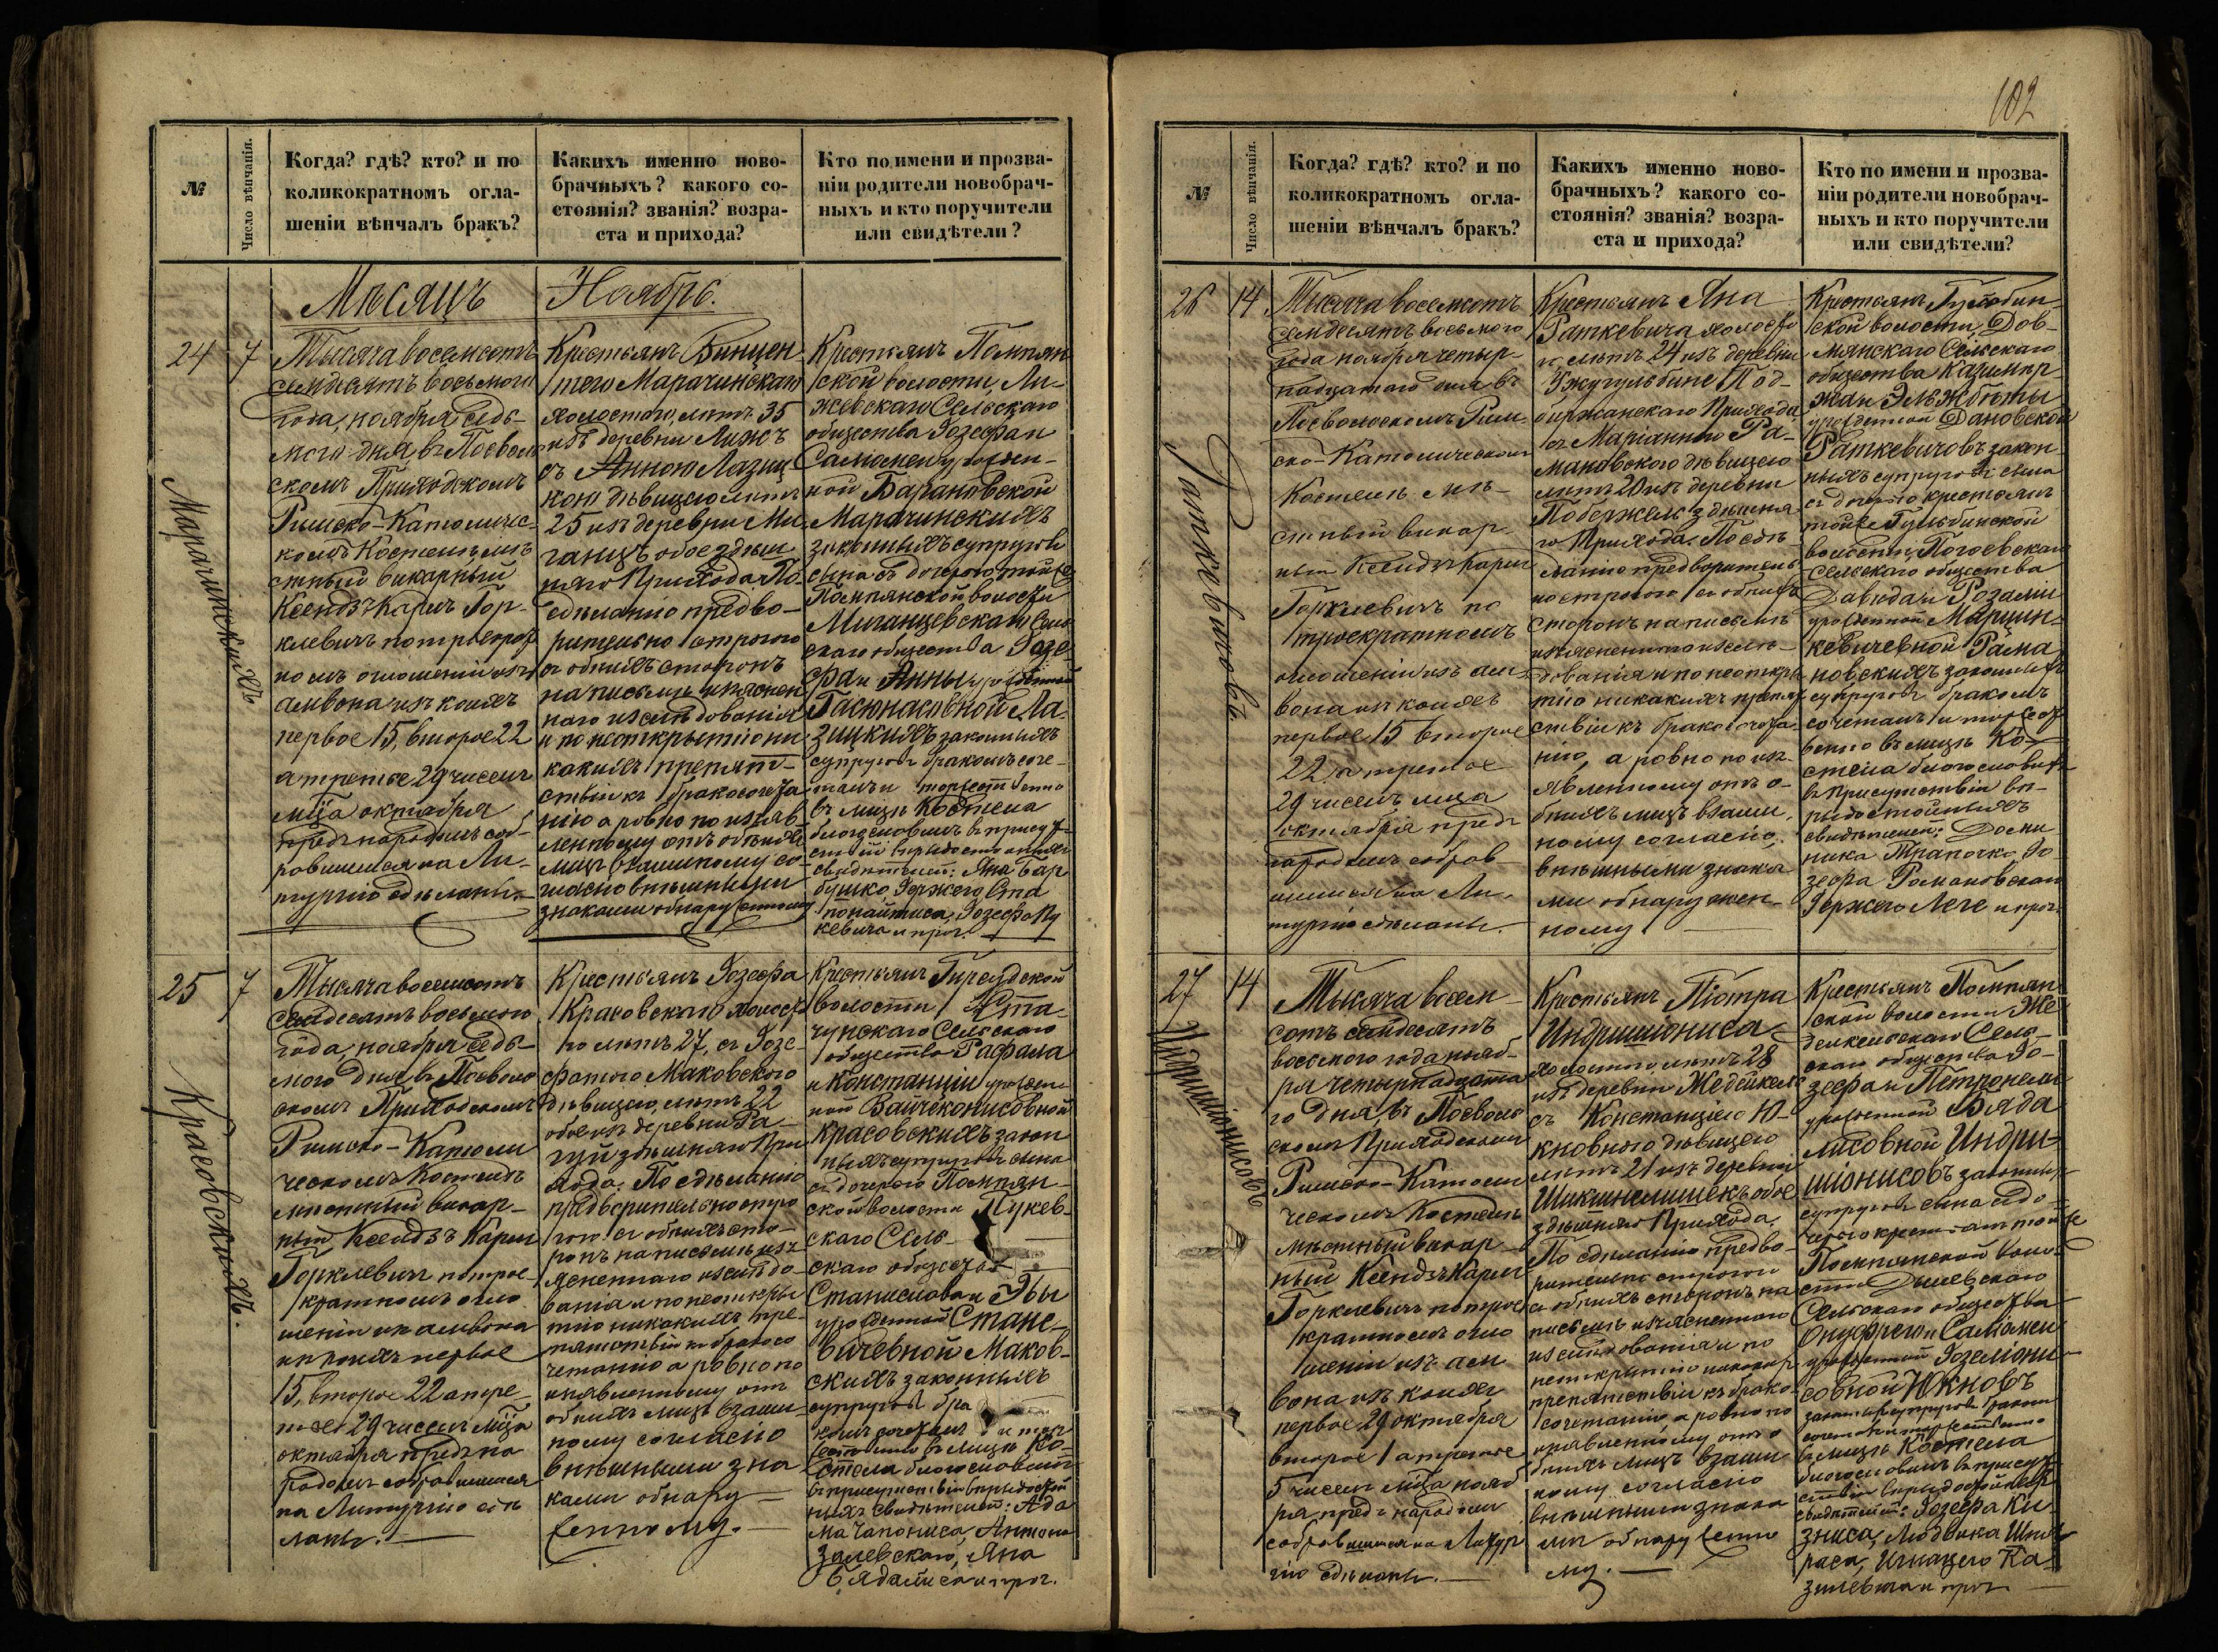 №
Число вѣнчанія.
Когда? гдѣ? кто? и по
коликократномъ огла-
шеніи вѣнчалъ бракъ?
Какихъ именно ново-
брачныхъ? какого со-
стоянія? званія? возра-
ста и прихода?
Кто по имени и прозва-
ніи родители новобрач-
ныхъ и кто поручители
или свидѣтели?
Мѣсяцъ Ноябрь.
24
7
Марачинскихъ
Тысяча восемсотъ
семдесятъ восьмого
года, ноября седь-
мого дня, въ Посволь
скомъ Приходскомъ
Римско-Католичес-
комъ Костелѣ мѣ
стный викарный
Ксендзъ Карлъ Гор-
клевичъ по троекрат
номъ оглошеніи изъ
амвона изъ коихъ
первое 15, второе 22
а третье 29 чиселъ
мца октября
предъ народомъ соб-
ровшимся на Ли-
тургію сдѣланы.
Крестьянъ Винцен-
таго Марачинскаго
холостого, лѣтъ 35
изъ деревни Лижъ
съ Анною Лазиц
кою дѣвицею лѣтъ
25 изъ деревни Ми
ганцъ обое здѣш
няго Прихода. По
сдѣланію предво-
рительно строгого
съ обоихъ сторонъ
на письмѣ изъяснен
наго изслѣдованія
и по неоткрытію ни
какихъ препят-
ствій къ бракосочета
нію а ровно по изъяв
ленному отъ обоихъ
лицъ взаимному со-
гласію внѣшными
знаками обнаруженному
Крестьянъ Помпян
ской волости, Ли-
жевскаго Сельскаго
общества Іозефа и
Саломеи урожден-
ной Барановской
Марачинскихъ
законныхъ супруговъ
сына съ дочерью той же
Помпянской волости
Миганцевскаго Сель
скаго общества Іозе-
фа и Анны урожденной
Гасюнасовной Ла-
зицкихъ законныхъ
супруговъ бракомъ соче-
талъ и торжественно
въ лицѣ Костела
благословилъ въ присут
ствіи вѣрыдостойныхъ
свидѣтелей: Яна Бар
бушко, Іержего Ста
понайтиса, Іозефа Пу
кевича и проч.
25
7
Красовскихъ.
Тысяча восемсотъ
семдесятъ восьмого
года, ноября седь-
мого дня въ Посволь
скомъ Приходскомъ
Римско-Католи
ческомъ Костелѣ
мѣстный викар-
ный Ксендзъ Карлъ
Горклевичъ по трое-
кратномъ огло
шеніи изъ амвона
изъ коихъ первое
15, второе 22 а тре-
тье 29 чиселъ мца
октября предъ на
родомъ собравшимся
на Литургію сдѣ
ланы.
Крестьянъ Іозефа
Красовскаго холост
го лѣтъ 27, съ Іозе-
фатою Маковского
дѣвицею, лѣтъ 22
обое изъ деревни Ра-
гуй здѣшняго При
хода. По сдѣланію
предворительно стро
гого съ обоихъ сто-
ронъ на письмѣ изъ
ясненнаго изслѣдо-
ванія и по неоткры
тію никакихъ пре-
пятствій къ бракосо
четанію а ровно по
изъявленному отъ
обоихъ лицъ взаим-
ному согласію
внѣшными зна
ками обнару-
женному.
Крестьянъ Гирсудской
волости Ста-
чунскаго Сельскаго
общества Рафала
и Констанціи урожден
ной Вайчеконисовной
Красовскихъ закон
ныхъ супруговъ сына
съ дочерью Помпян-
ской волости Пукев-
скаго Сель-
скаго общества
Станислава и Эвы
урожденной Стане-
вичевной Маков-
скихъ законныхъ
супруговъ бра
комъ сочеталъ и тор
жественно въ лицѣ Ко-
стела благословилъ
въ присутствіи вѣрыдостой
ныхъ свидѣтелей: Ада
ма Чапониса, Антона
Залевскаго, Яна
Бядалиса и проч.
102
№
Число вѣнчанія.
Когда? гдѣ? кто? и по
коликократномъ огла-
шеніи вѣнчалъ бракъ?
Какихъ именно ново-
брачныхъ? какого со-
стоянія? званія? возра-
ста и прихода?
Кто по имени и прозва-
ніи родители новобрач-
ныхъ и кто поручители
или свидѣтели?
26
14
Раткевичовъ.
Тысяча восемсотъ
семдесятъ восьмого
года ноября четыр-
надцатого дня въ
Посвольскомъ Рим-
ско-Католическомъ
Костелѣ мѣ-
стный викар
ный Ксендзъ Карлъ
Горклевичъ по
троекратномъ
оглошеніи изъ ам
вона изъ коихъ
первое 15 второе
22, а третье
29 чиселъ мца
октября предъ
народомъ собрав-
шимся на Ли-
тургію сдѣланы.
Крестьянъ Яна
Раткевича холосто
го лѣтъ 24 изъ деревни
Ужугульбине Под-
биржанскаго Прихода
съ Маріанною Ра-
мановского дѣвицею
лѣтъ 20 изъ деревни
Побержель здѣшня
го Прихода. По сдѣ
ланію предворитель
но строгого съ обоихъ
сторонъ на письмѣ
изъясненнаго изслѣ-
дованія и по неоткры
тію никакихъ препят
ствій къ бракосочета
нію, а ровно по изъ
явленному отъ о-
боихъ лицъ взаим
ному согласію,
внѣшными знака
ми обнаружен-
ному.
Крестьянъ Гульбин-
ской волости Дов-
мянскаго Сельскаго
общества Казимір
жа и Эльжбѣты
урожденной Дановской
Раткевичовъ закон
ныхъ супруговъ сына
съ дочерью крестьянъ
той же Гульбинской
волости, Погоевскаго
Сельскаго общества
Давида и Розаліи
урожденной Марцин-
кевичевной Рама
новскихъ законныхъ
супруговъ бракомъ
сочеталъ и торжест
венно въ лицѣ Ко-
стела благословилъ
въ присутствіи вѣ-
рыдостойныхъ
свидѣтелей: Доми
ника Трапочко, Іо-
зефа Романовскаго
Іержего Леге и проч.
27
14
Индришіонисовъ
Тысяча восем-
сотъ семдесятъ
восьмого года нояб-
ря четырнадцата
го дня, въ Посволь
скомъ Приходскомъ
Римско-Католи
ческомъ Костелѣ
мѣстный викар-
ный Ксендзъ Карлъ
Горклевичъ по трое
кратномъ огло
шеніи изъ ам
вона изъ коихъ
первое 29 октября
второе 1 а третье
5 чиселъ мца нояб
ря, предъ народомъ
собравшимся на Литур
гію сдѣланы.
Крестьянъ Піотра
Индришіониса
холостого лѣтъ 28
изъ деревни Жедейкель
съ Констанціею Ю-
кновною дѣвицею
лѣтъ 21 изъ деревни
Шикшнелишекъ обое
здѣшняго Прихода.
По сдѣланію предво-
рительно строгого
съ обоихъ сторонъ на
письмѣ изъясненнаго
изслѣдованія и по
неоткрытію никакихъ
препятствій къ брако-
сочетанію а ровно по
изъявленному отъ о
боихъ лицъ взаим
ному согласію
внѣшными знака
ми обнаруженно
му.
Крестьянъ Помпян
ской волости Же
дейкельскаго Сель-
скаго общества Іо-
зефа и Петронели
урожденной Бяда
лисовной Индри-
шіонисовъ законныхъ
супруговъ сына съ до
черью крестьянъ той же
Помпянской воло-
сти
Сельскаго общества
Онуфрего и Саломеи
урожденной Іозеліони-
совной Юкновъ
законныхъ супруговъ бракомъ
сочеталъ и торжественно
въ лицѣ Костела
благословилъ въ присут
ствіи вѣрыдостойныхъ
свидѣтелей: Іозефа Ки
зниса, Людвика Шпа
раса, Игнацего Ка
зилевича и проч.